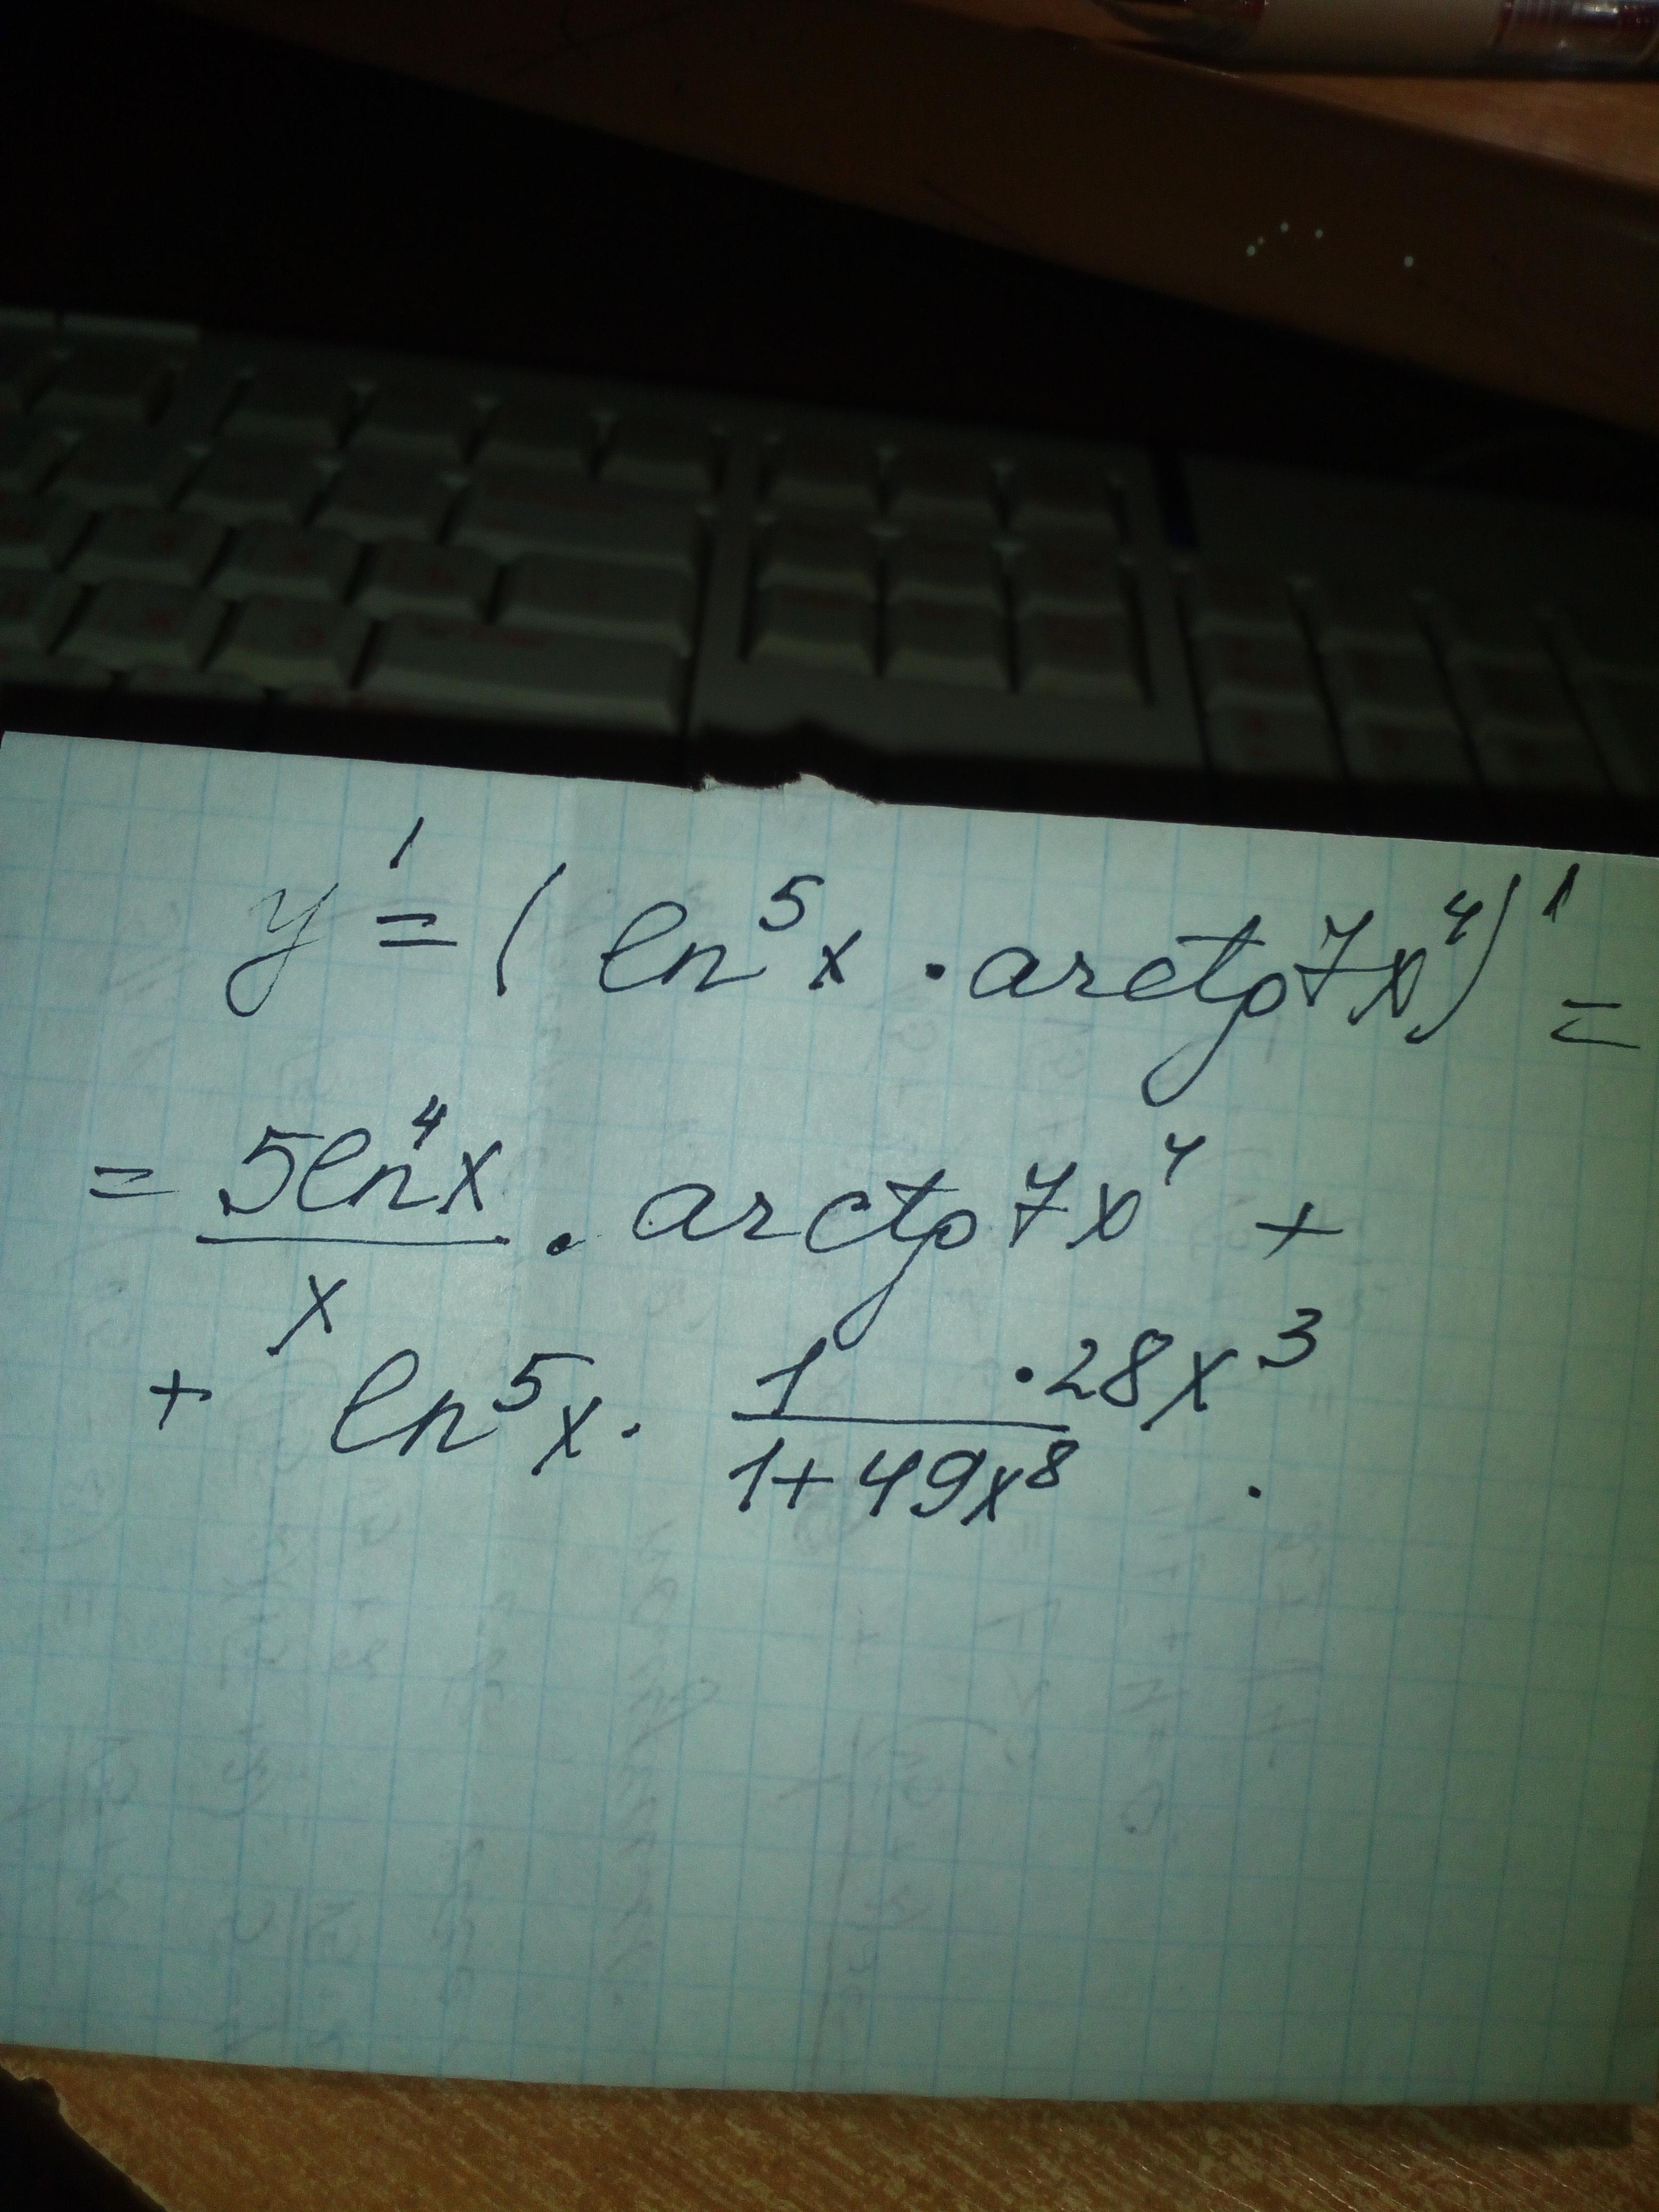 y' = (ln⁵x · arctg 7x⁴)' =
= 5ln⁴x / x · arctg 7x⁴ +
+ ln⁵x · 1 / (1+49x⁸) · 28x³ .